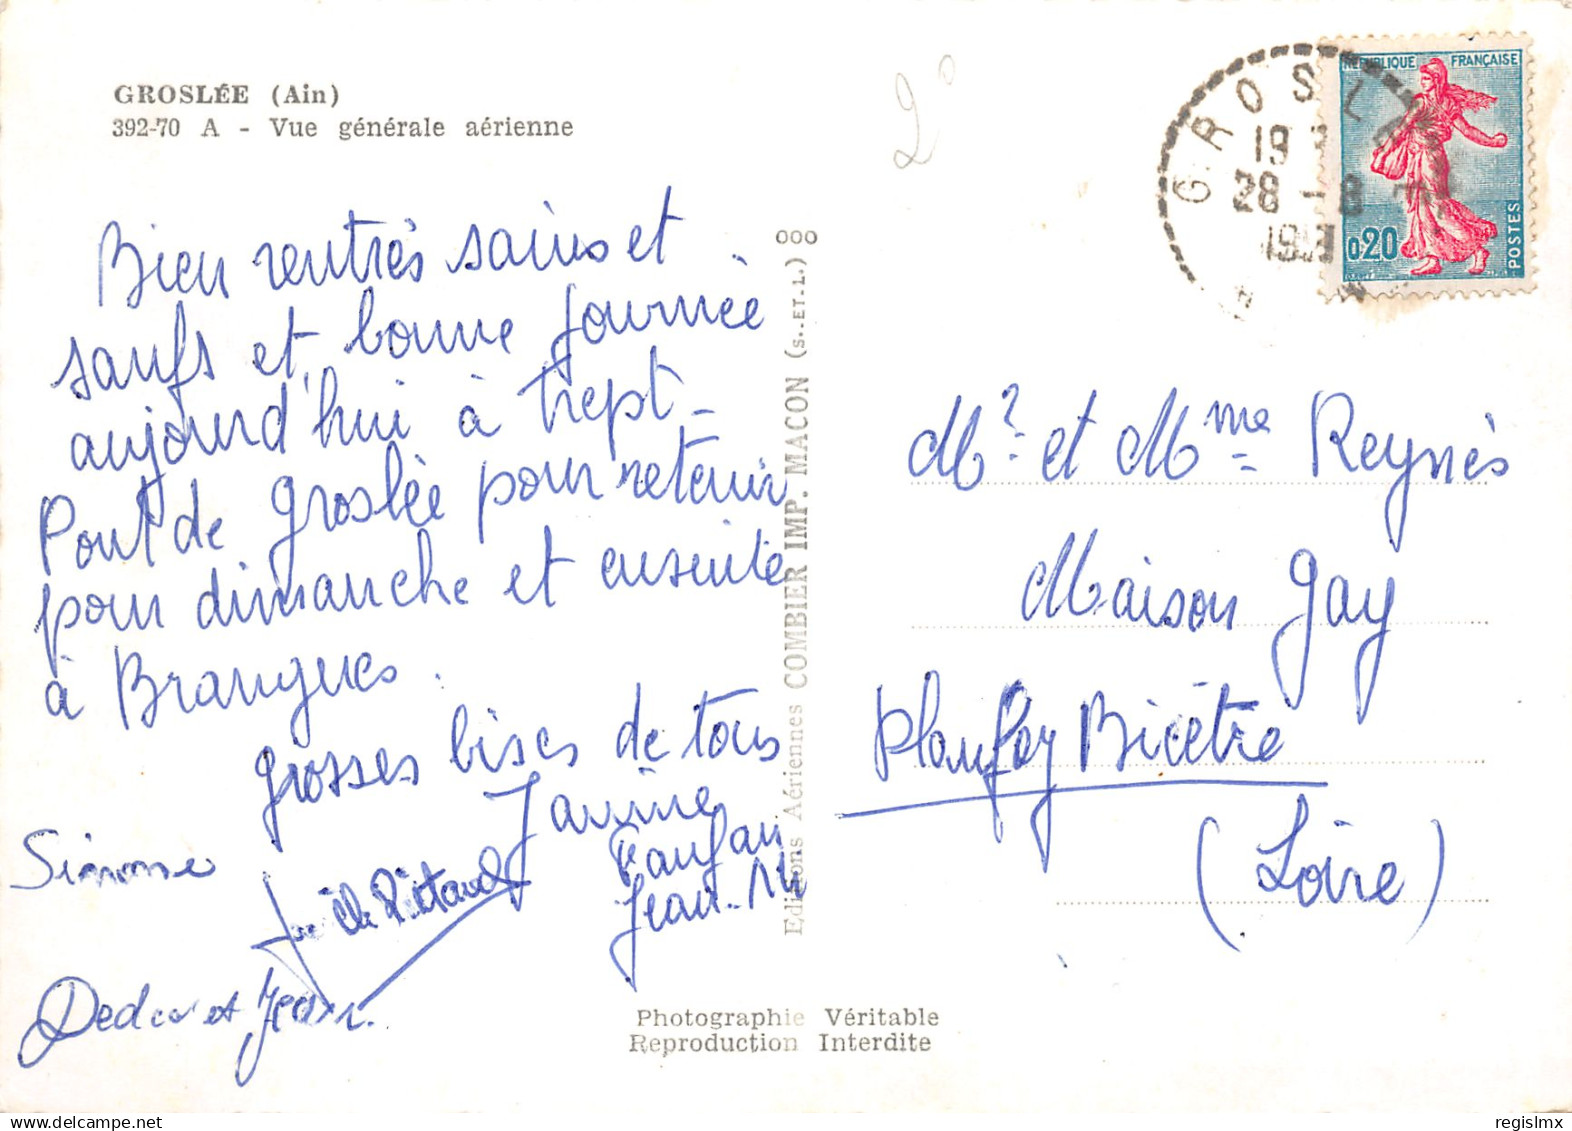 GROSLÉE (Ain)
392-70 A - Vue générale aérienne
2°
GROSL
19
28 - 8
RÉPUBLIQUE FRANÇAISE
0,20
POSTES
Bien rentrés sains et
saufs et bonne journée
aujourd'hui à Trept -
Pont de Groslée pour retenir
pour dimanche et ensuite
à Brangues.
Grosses bises de tous
Janine
Simone
Fanfan
Jean-M
Dedee et Jean.
Editions Aériennes COMBIER IMP. MACON (S.-ET-L.) 000
Mr. et Mme Reynès
Maison Gay
Planfoy Bicêtre
(Loire)
Photographie Véritable
Reproduction Interdite
regislmx